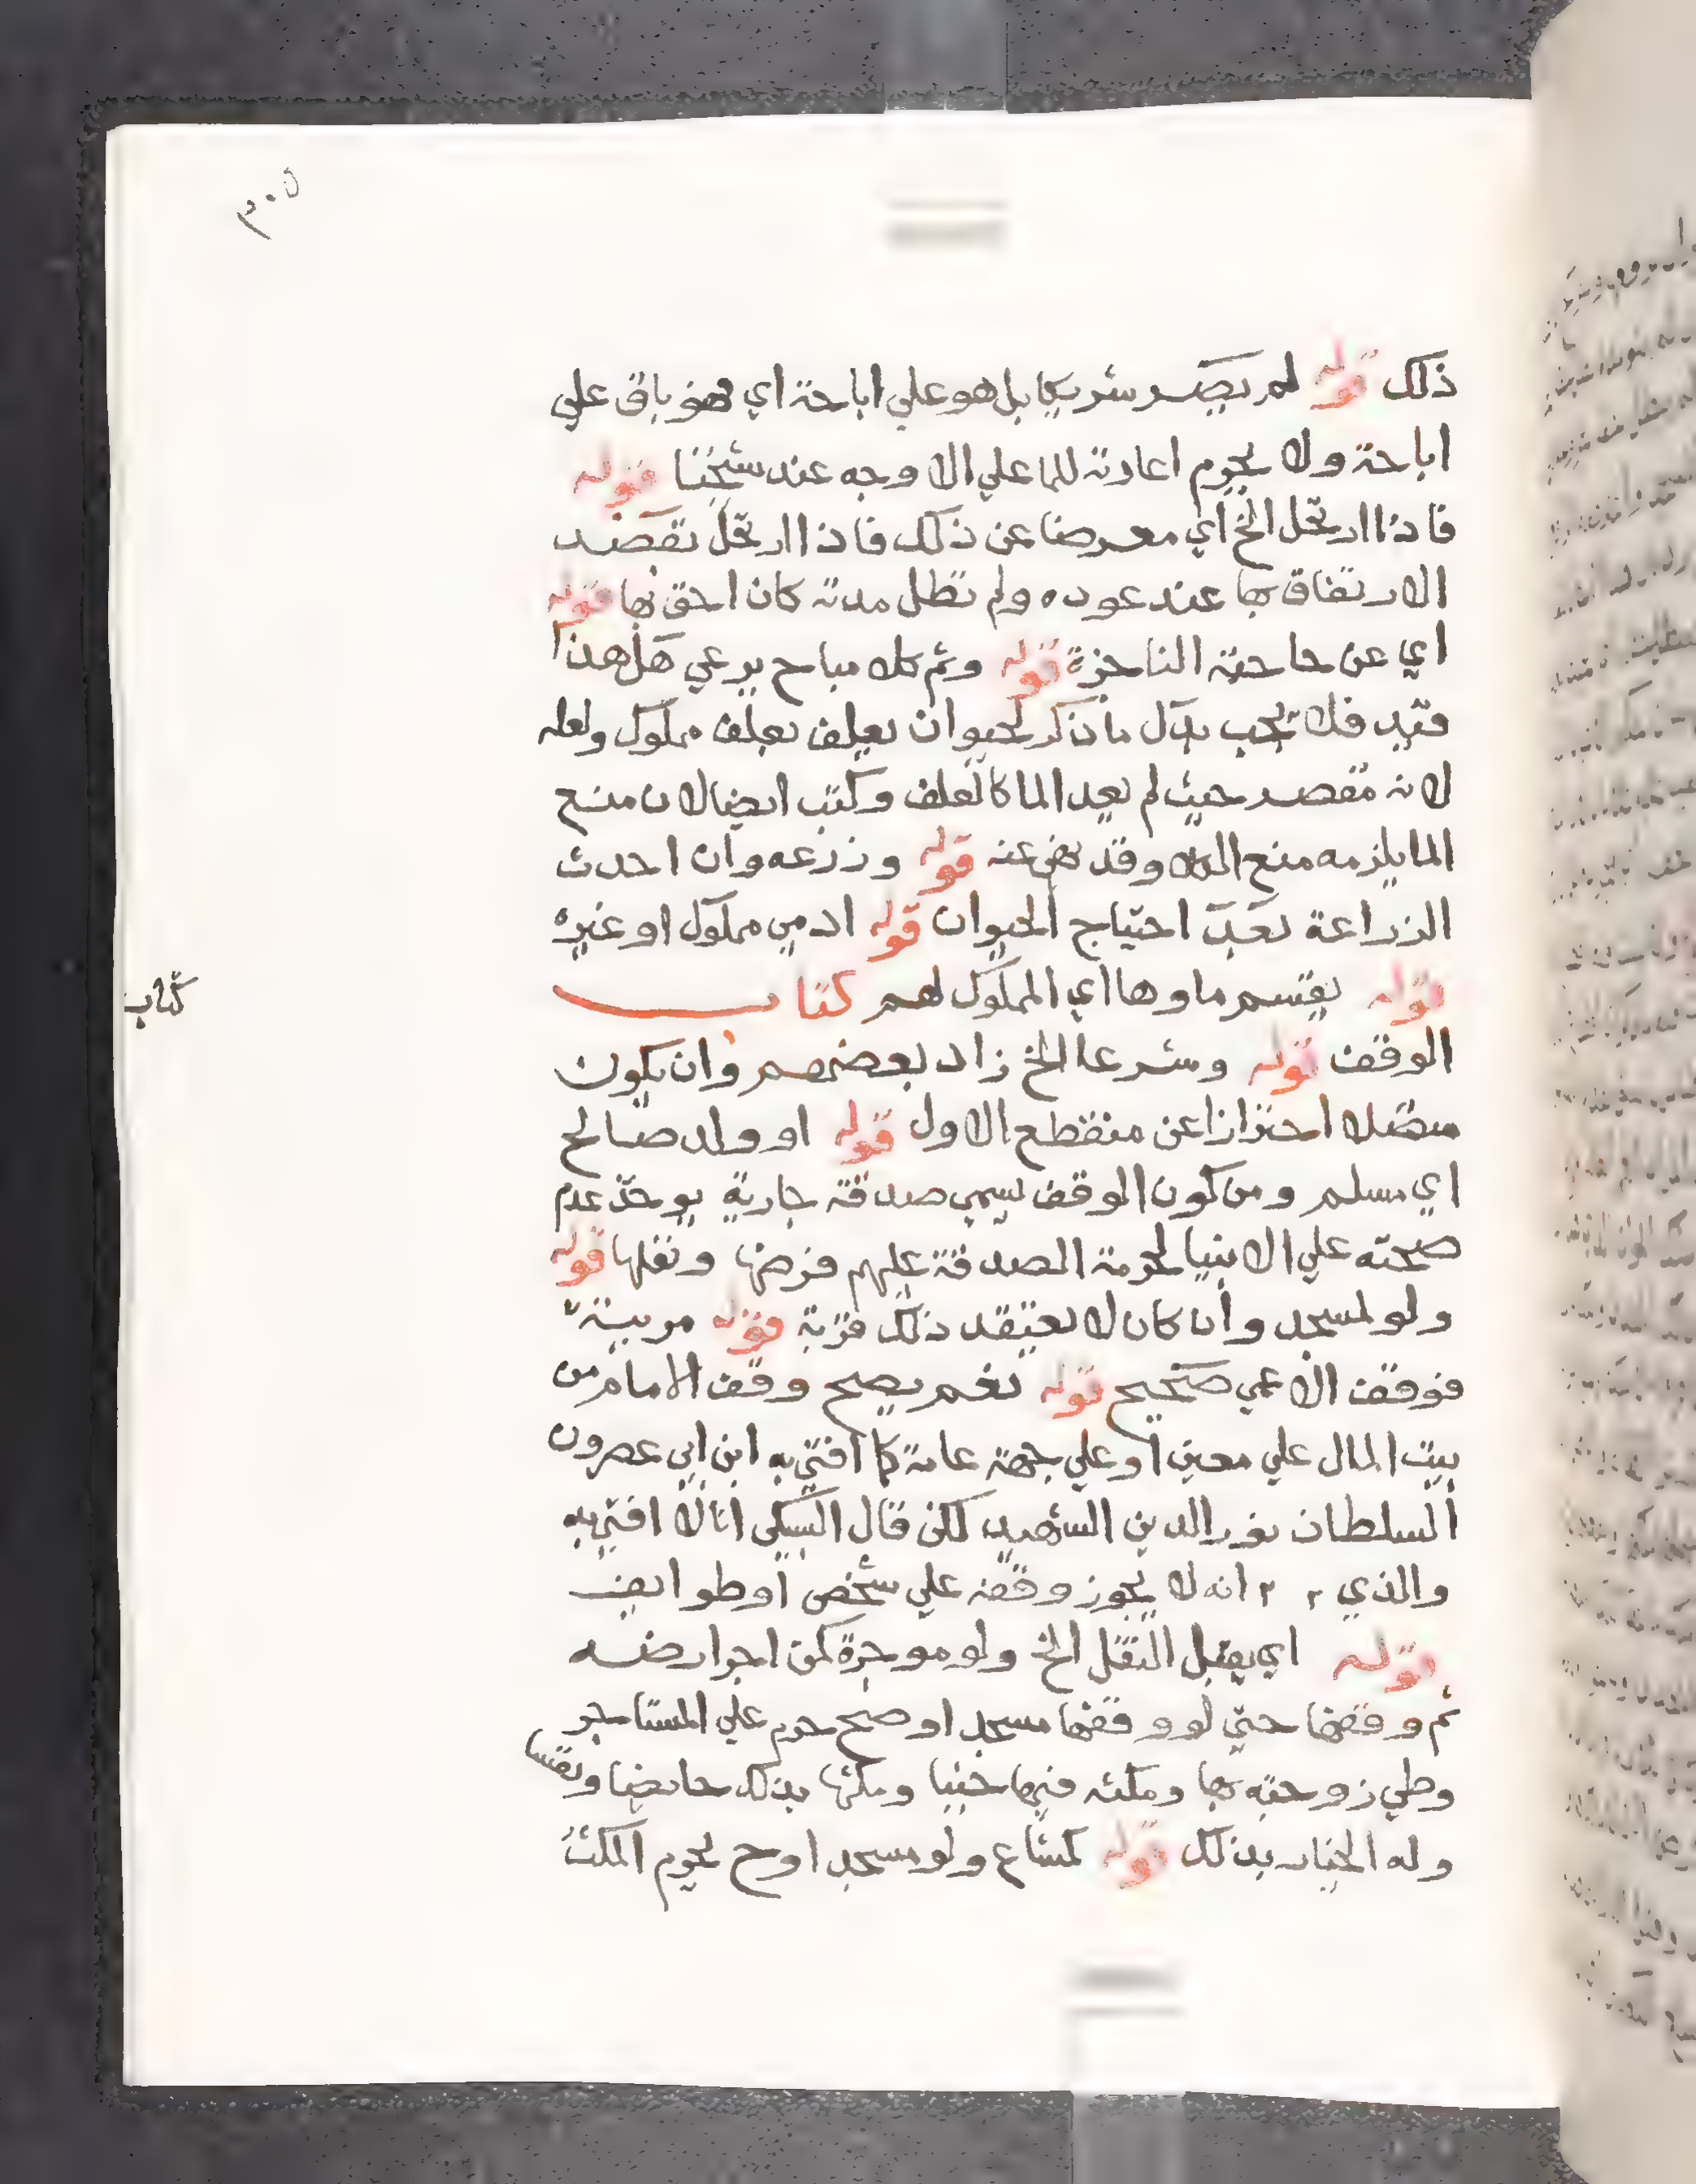 ٣٠٥
ذلك قوله لم يصر شريكا بل هو علي اباحة اي فهو باق علي
اباحة ولا يحرم اعادته للما علي الاوجه عند شيخنا قوله
فاذا ارتحل الخ اي معرضا عن ذلك فاذا ارتحل بقصد
الارتفاق بها عند عوده ولم تطل مدته كان احق بها قوله
اي عن حاجته الناجزة قوله وثم كلا مباح يرعي هل هذا
قيد فلا يجب بذل ما ذكر لحيوان يعلف بعلف مملوك ولعله
لانه مقصر حيث لم يعد الما كالعلف وكتب ايضا لان منع
الما يلزمه منع الكلا وقد نهي عنه قوله وزرعه وان احدث
الزراعة بعد احتياج الحيوان قوله ادمي مملوك او غيره
قوله يقسم ماوها اي المملوك لهم كتاب
كتاب
الوقف قوله وشرعا الخ زاد بعضهم وان يكون
متصلا احترازا عن منقطع الاول قوله او ولد صالح
اي مسلم ومن كون الوقف يسمي صدقة جارية يوخذ عدم
صحته علي الانبيا لحرمة الصدقة عليهم فرضها ونفلها قوله
ولو لمسجد وان كان لا يعتقد ذلك قربة قوله مريية
فوقف الاعمي صحيح قوله نعم يصح وقف الامام من
بيت المال علي معين او علي جهة عامة كما افتي به ابن ابي عصرون
السلطان نور الدين الشهيد لكن قال السبكي انا لا افتي به
والذي ٢ ٢ انه لا يجوز وقفه علي شخص او طوايف
قوله اي يقبل النقل الخ ولو موجرة كمن اجر ارضه
ثم وقفها حتي لو وقفها مسجدا وصح حرم علي المستاجر
وطي زوجته بها ومكثه فيها جنبا ومكثها بذلك حايضا ونفسا
وله الخيار بذلك قوله كمشاع ولو مسجدا وح يحرم المكث